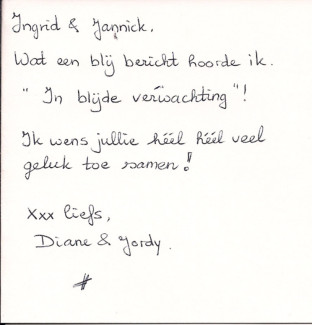 Ingrid & Yannick,
Wat een blij bericht hoorde ik.
" In blijde verwachting "!
Ik wens jullie héél héél veel
geluk toe samen!
Xxx liefs,
Diane & Jordy.
#